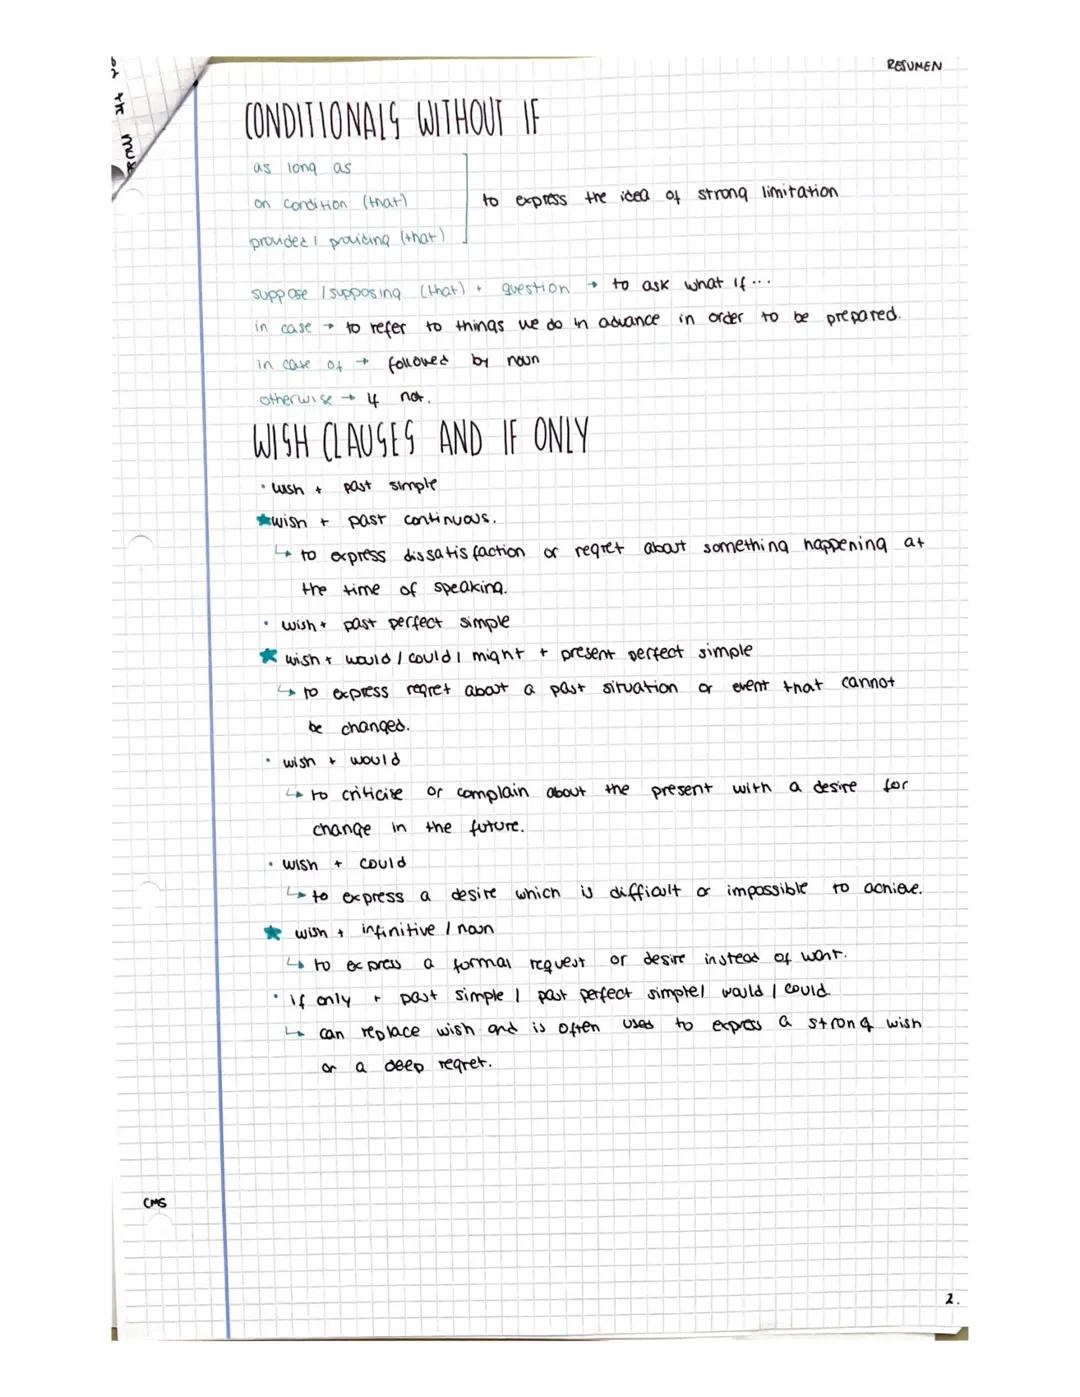 RESUMEN
CONDITIONALS WITHOUT IF
as long as
on condition (that)
to express the idea of strong limitation
provided / providing (that)
suppose / supposing (that) + question → to ask what if ...
in case → to refer to things we do in advance in order to be prepared.
in case of → followed by noun
otherwise → if not.
WISH CLAUSES AND IF ONLY
• wish + past simple
★ wish + past continuous.
↳ to express dissatisfaction or regret about something happening at
the time of speaking.
• wish + past perfect simple
★ wish + would / could / might + present perfect simple
↳ to express regret about a past situation or event that cannot
be changed.
• wish + would
↳ to criticise or complain about the present with a desire for
change in the future.
• wish + could
↳ to express a desire which is difficult or impossible to achieve.
★ wish + infinitive / noun
↳ to express a formal request or desire instead of want.
• if only + past simple / past perfect simple / would / could.
↳ can replace wish and is often used to express a strong wish
or a deep regret.
CMS
2.